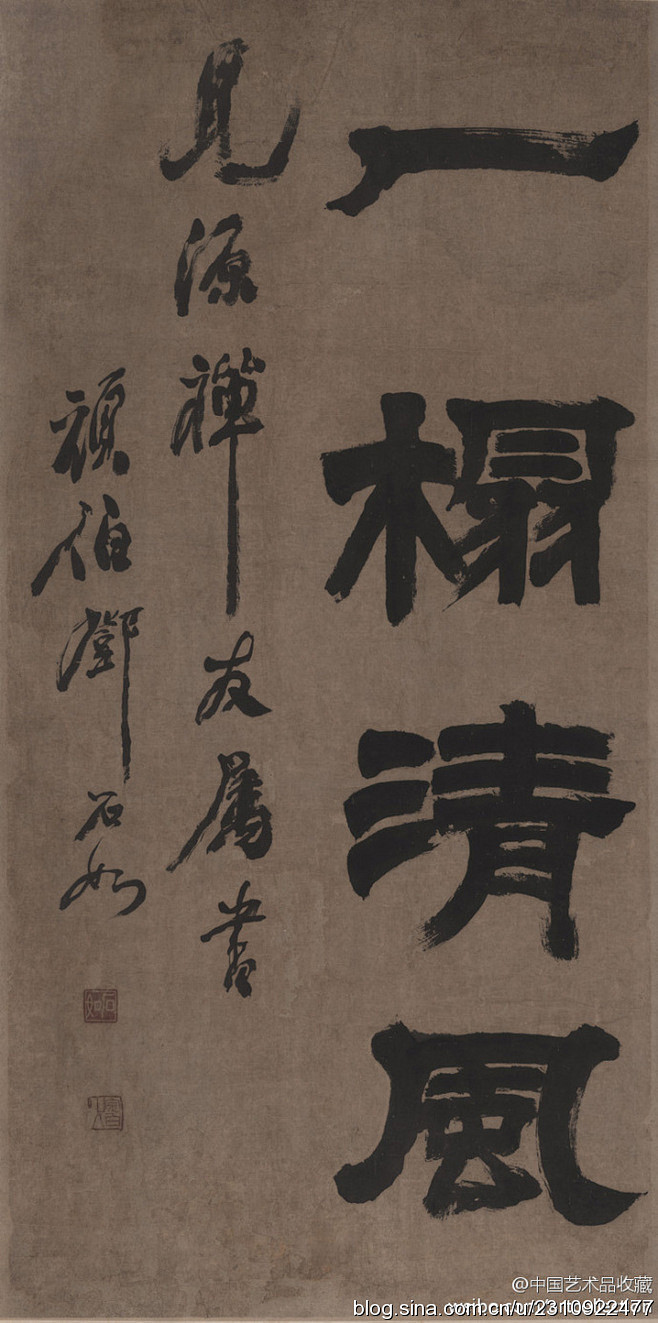 一榻清風
見源禪友屬書
頑伯鄧石如
石如
@中国艺术品收藏
blog.sina.com.cn/u/2310922477